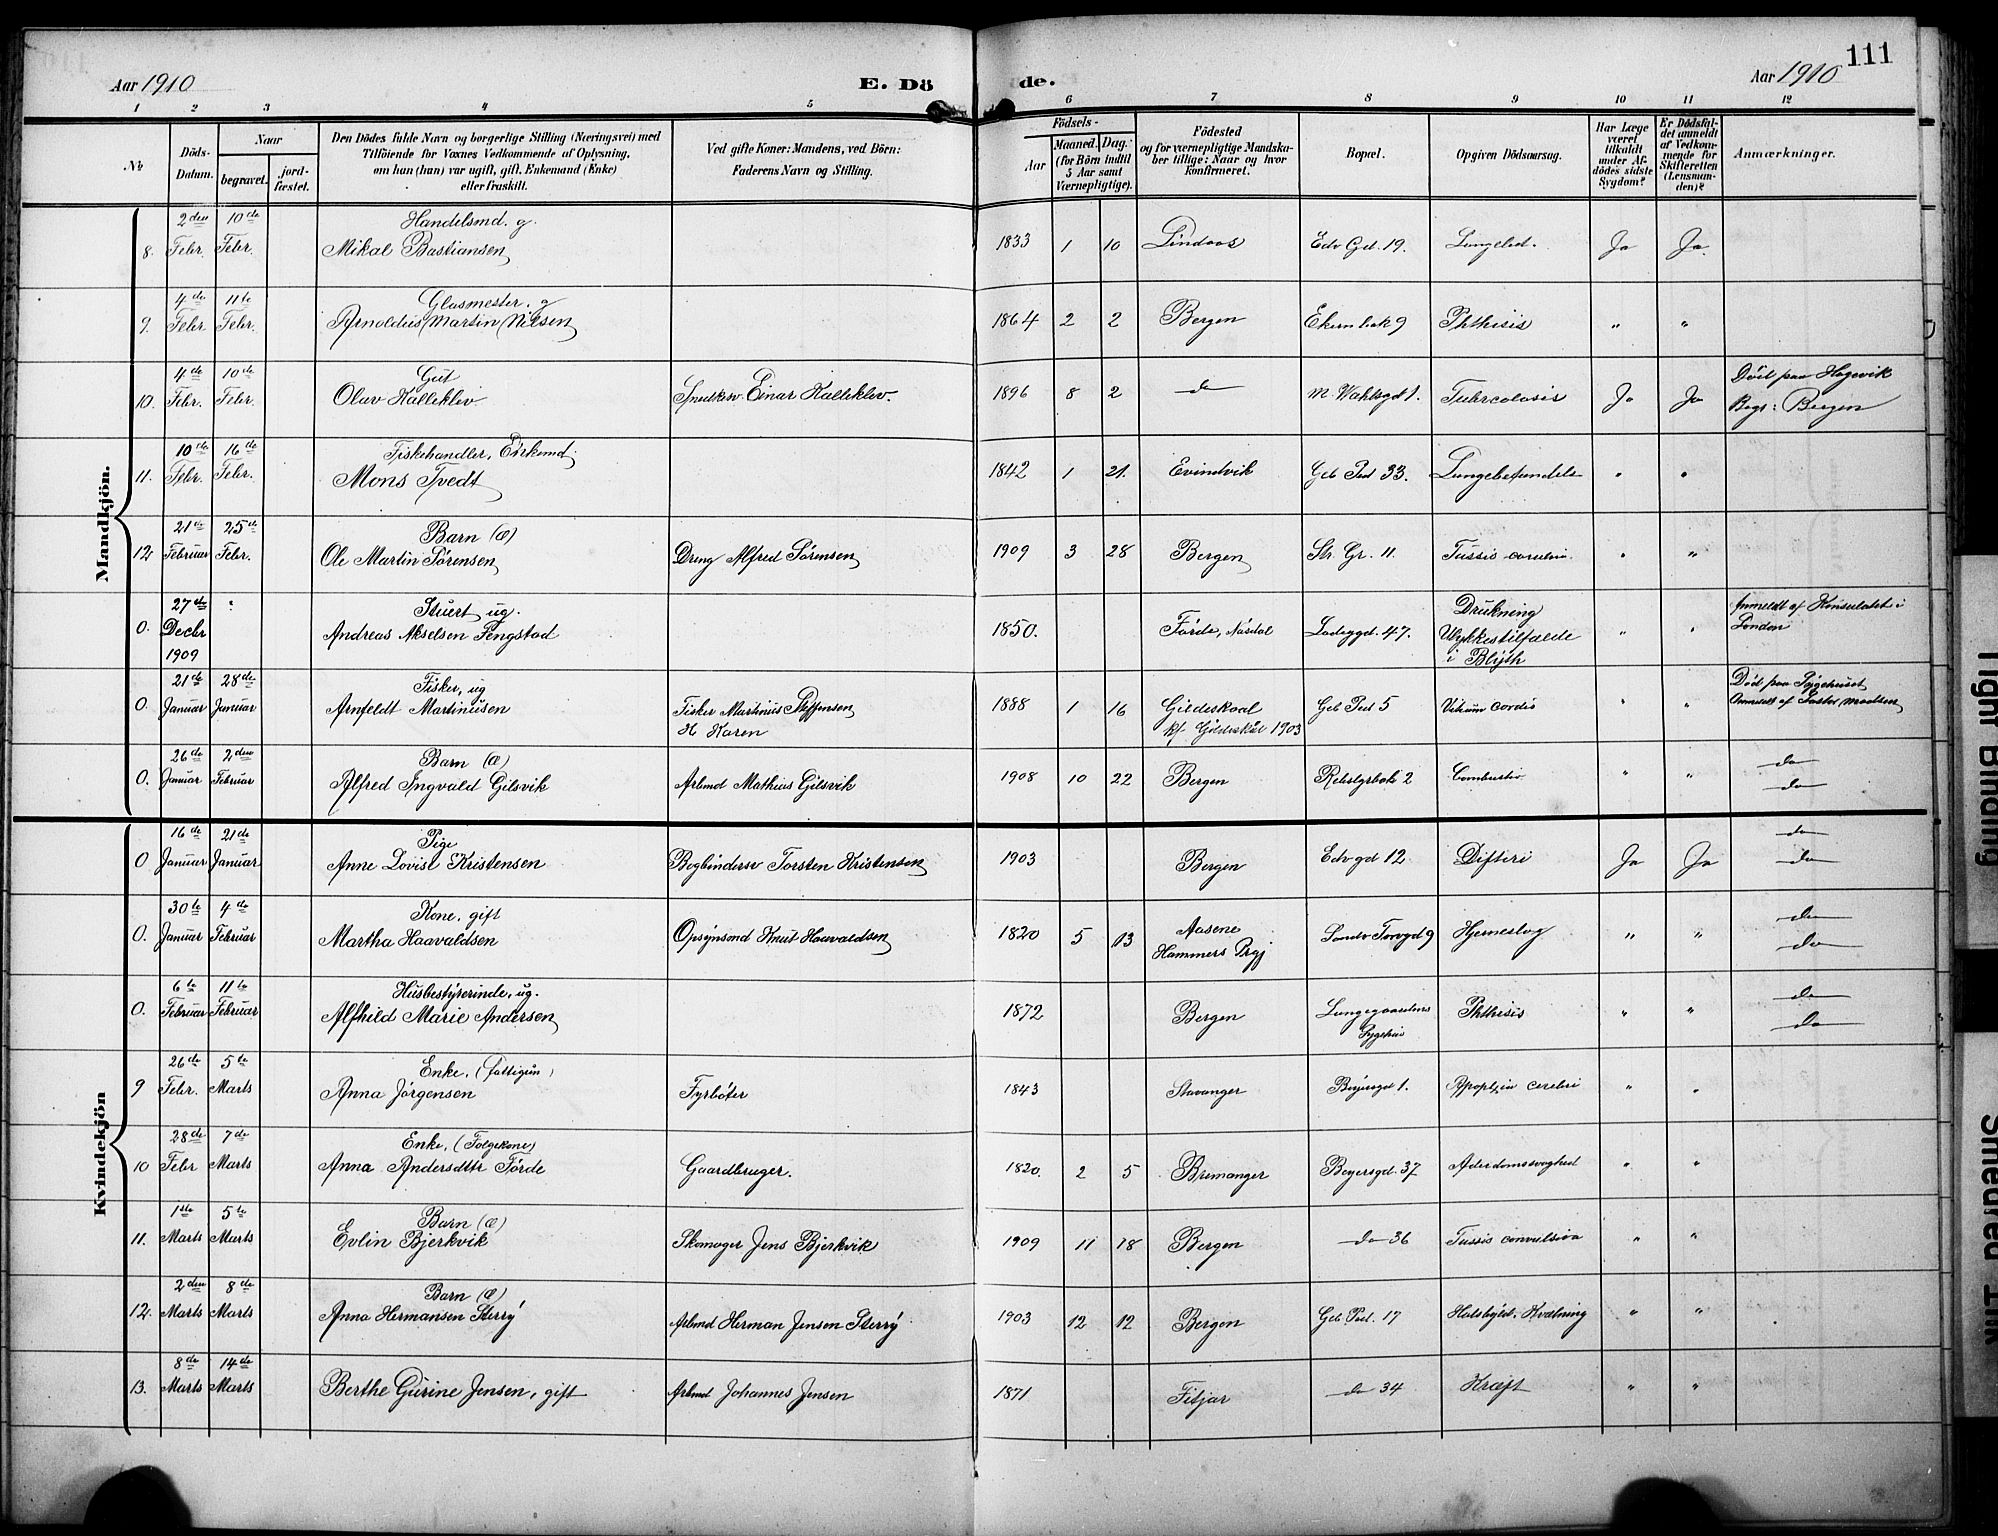 111
Aar 1910
E. Döde.
Aar 1910
1 2 3 4 5 6 7 8 9 10 11 12
No
Döds-Datum.
Naar
begravet.
jordfæstet.
Den Dödes fulde Navn og borgerlige Stilling (Næringsvei) med
Tilföiende for Voxnes Vedkommende af Oplysning,
om han (hun) var ugift, gift, Enkemand (Enke)
eller fraskilt.
Ved gifte Koner: Mandens, ved Börn:
Faderens Navn og Stilling.
Födsels-
Aar
Maaned.
Dag.
(for Börn indtil
5 Aar samt
Værnepligtige).
Födested
og for værnepligtige Mandskaber tillige: Naar og hvor
konfirmeret.
Bopæl.
Opgiven Dödsaarsag.
Har Læge
været
tilkaldt
under Afdödes sidste
Sygdom?
Er Dödsfaldet anmeldt
af Vedkommende for
Skifteretten
(Lensmanden)?
Anmærkninger.
Mandkjön.
8. 2den Febr. 10de Febr. Handelsmd. g. Mikal Bastiansen 1833 1 10 Lindaas Edv Gd. 19. Ja Ja.
9. 4de Febr. 11te Febr. Glasmester. g Arnoldus Martin Nilsen 1864 2 2 Bergen 9 Phthisis " "
10. 4de Febr. 10de Febr. Gut Olav Kalleklev Snedkersv. Einar Kalleklev. 1896 8 2 do M. Wahlsgd 1. Tubercolosis Ja Ja Död paa Hagevik Begr: Bergen
11. 10de Febr. 16de Febr. Fiskehandler, Enkemd. Mons Tvedt 1842 1 21. Evindvik Geb Pud 33. Lungebetændelse " "
12. 21de Februar 25de Febr. Barn (æ) Ole Martin Sörensen Dreng Alfred Sörensen 1909 3 28 Bergen Str. Gr. 11. Tussis " "
0. 27de Decbr 1909 " Stuert ug. Andreas Akselsen Fengstad 1850. Förde, Nösdal Ladegd. 47. Drukning Ulykkestilfælde i Blyth " " Anmeldt af Konsulatet i London
0. 21de Januar 28de Januar Fisker, ug Arnfeldt Martinusen Fisker Martinus Steffensen H Karen 1888 1 16 Gildeskaal kf. Gildeskål 1903 Geb Pud 5 Vitium cordis " " Död paa Sygehuset Anmeldt af Pastor
0. 26de Januar 2den Februar Barn (æ) Alfred Ingvald Gilsvik Arbmd Mathias Gilsvik 1908 10 22 Bergen 2 Combustio " " do do
Kvindekjön
0 16de Januar 21de Januar Pige Anne Lovise Kristensen Bogbindersv Torsten Kristensen 1903 Bergen Edvgd 12 Difteri Ja Ja do do
0. 30te Januar 4de Februar Kone, gift Martha Haavaldsen Opsynsmd Knut Haavaldsen 1820 5 13 Aasene Hammers Prgj Sondv Torvgd 9 Hjerneslag " " do do
0. 6te Februar 11te Februar Husbestyrerinde, ug. Alfhild Marie Andersen 1872 Bergen Lungegaardens Sygehus Phthisis " " do do
9 26de Febr. 5te Marts Enke, (fattigun) Anna Jörgensen Fyrböter 1843 Stavanger 1. Apoplexia cerebri " "
10 28de Febr 7de Marts Enke, (Folgekone) Anna Andersdttr Förde Gaardbruger. 1820. 2 5 Bremanger Beyersgd. 37 Alderdomssvaghed " "
11. 1ste Marts 5te Marts Barn (æ) Evlin Bjerkvik Skomager Jens Bjerkvik 1909 11 18 Bergen do 36 Tussis convulsiva " "
12. 2den Marts 8de Marts Barn (æ) Anna Hermansen Sterry Arbmd Herman Jensen Sterry 1903 12 12 Bergen Geb Pud. 17 Halsbyld. Kvælning " "
13. 8de Marts 14de Marts Berthe Gurine Jensen, gift Arbmd Johannes Jensen 1871 Fitjar do 34 Kræft " "
Tight Binding
Smeared Ink